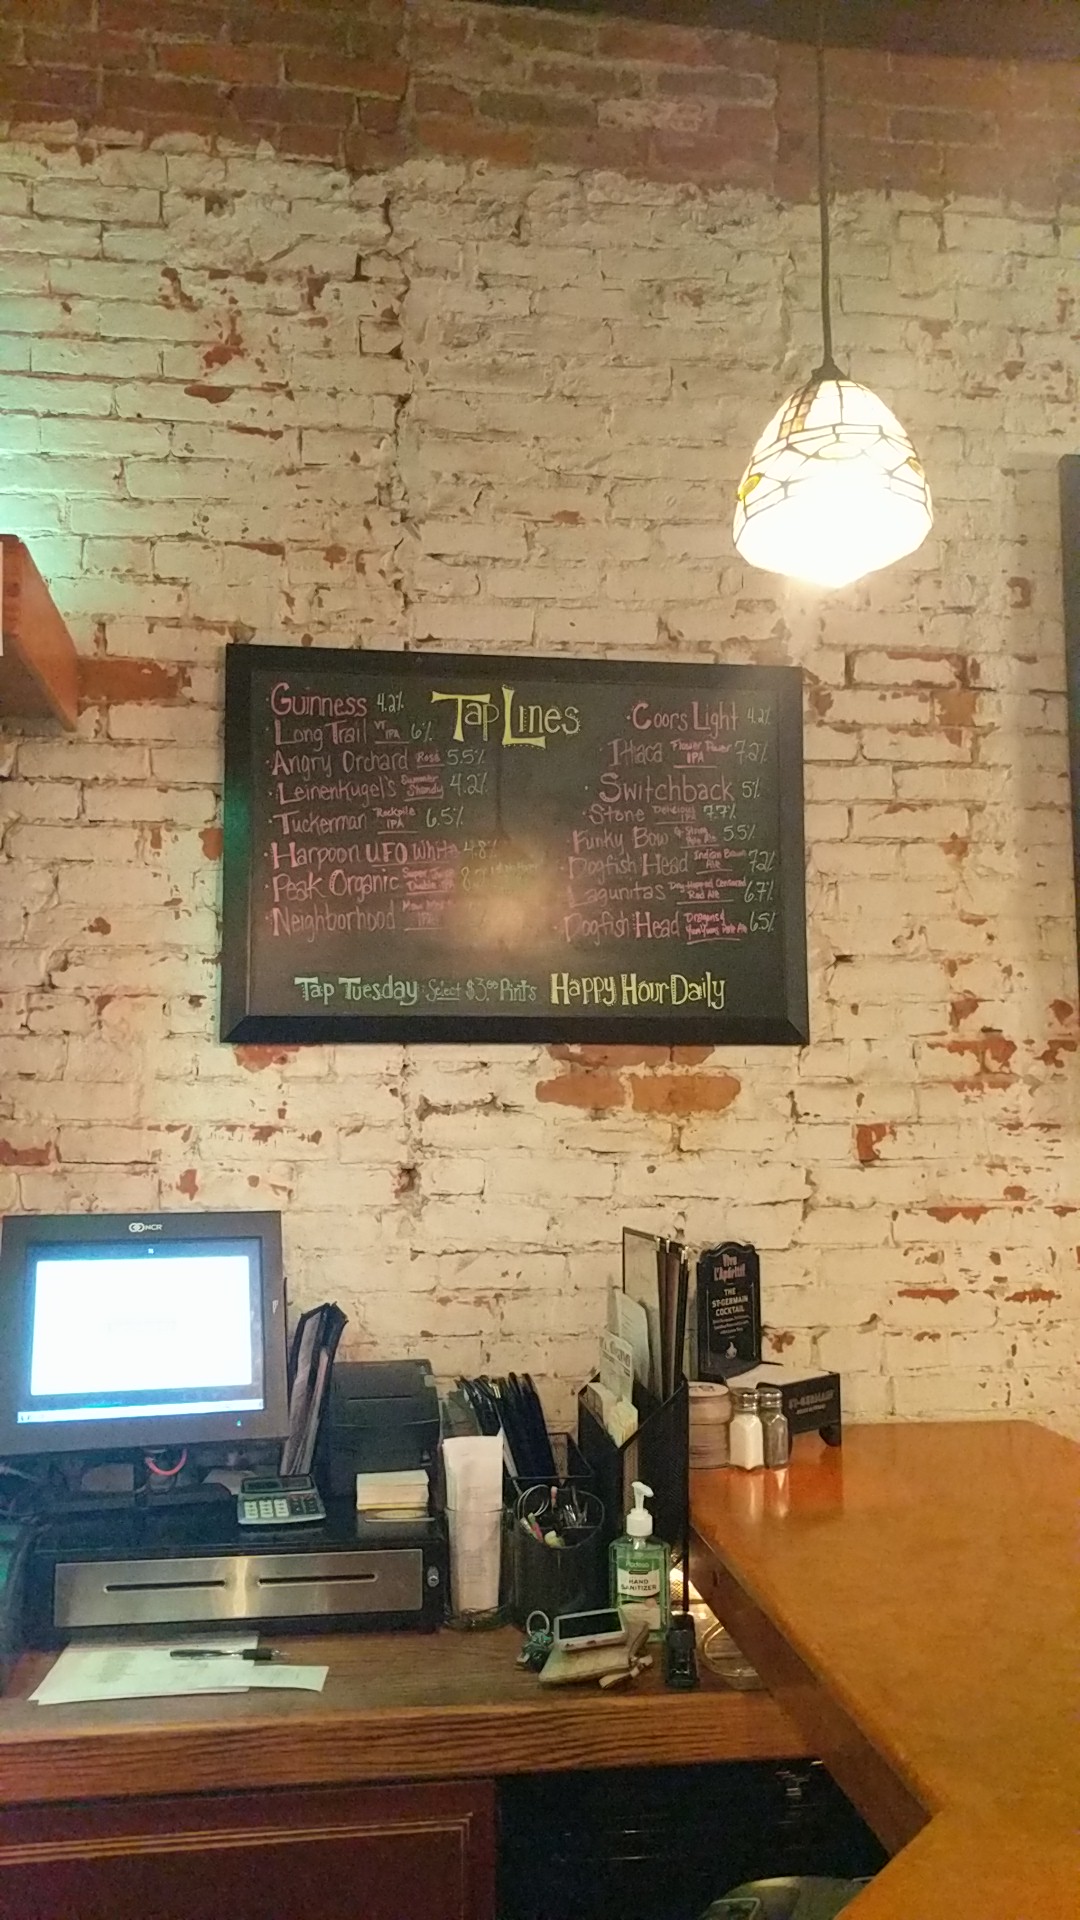 Tap Lines
·Guinness 4.2%
·Long Trail VT IPA 6%
·Angry Orchard Rosé 5.5%
·Leinenkugel's Summer Shandy 4.2%
·Tuckerman Rockpile IPA 6.5%
·Harpoon UFO White 4.8%
·Peak Organic Super Juice Double IPA
·Neighborhood
·Coors Light 4.2%
·Ithaca Flower Power IPA 7.2%
·Switchback 5%
·Stone Delicious 7.7%
·Funky Bow 5.5%
·Dogfish Head Indian Brown Ale 7.2%
·Lagunitas Dry-Hopped Censored Red Ale 6.7%
·Dogfish Head Dragons & YumYums Pale Ale 6.5%
Tap Tuesday: Select $3.00 Pints
Happy Hour Daily
NCR
Viva
L'Apéritif!
THE
ST-GERMAIN
COCKTAIL
ST-GERMAIN
HAND
SANITIZER